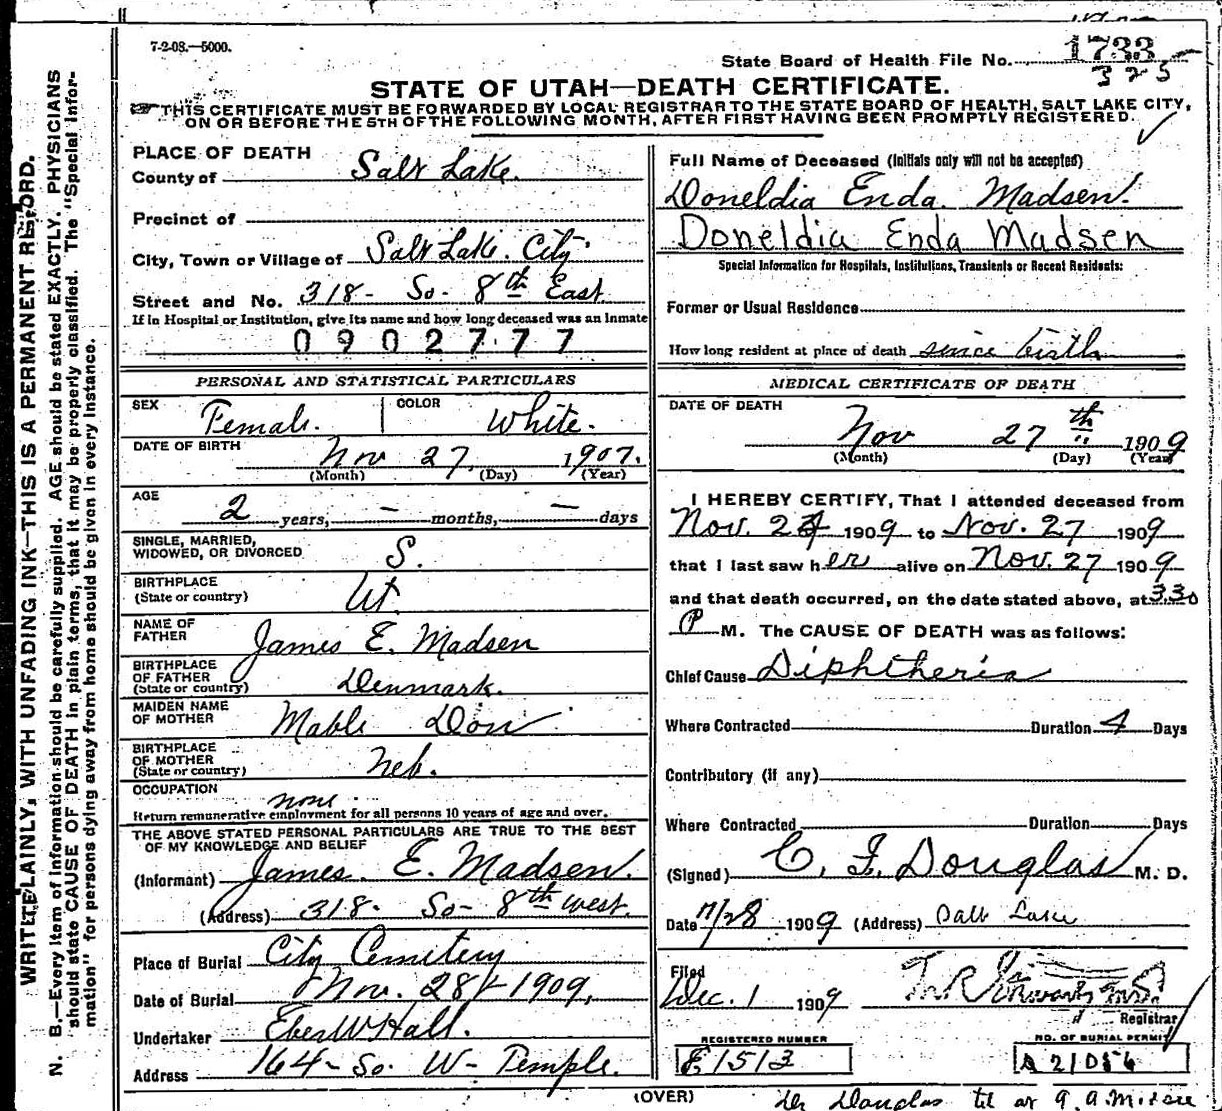 7-2-08.—5000.
State Board of Health File No. 1733
325
STATE OF UTAH—DEATH CERTIFICATE.
THIS CERTIFICATE MUST BE FORWARDED BY LOCAL REGISTRAR TO THE STATE BOARD OF HEALTH, SALT LAKE CITY,
ON OR BEFORE THE 5TH OF THE FOLLOWING MONTH, AFTER FIRST HAVING BEEN PROMPTLY REGISTERED.
WRITE PLAINLY, WITH UNFADING INK—THIS IS A PERMANENT RECORD.
N. B.—Every item of information should be carefully supplied. AGE should be stated EXACTLY. PHYSICIANS
should state CAUSE OF DEATH in plain terms, that it may be properly classified. The "Special Infor-
mation" for persons dying away from home should be given in every instance.
PLACE OF DEATH
County of Salt Lake.
Precinct of
City, Town or Village of Salt Lake City
Street and No. 318- So- 8th East
If in Hospital or Institution, give its name and how long deceased was an inmate
0902777
PERSONAL AND STATISTICAL PARTICULARS
SEX Female. COLOR White.
DATE OF BIRTH Nov 27, 1907.
(Month) (Day) (Year)
AGE
2 years, — months, — days
SINGLE, MARRIED,
WIDOWED, OR DIVORCED S.
BIRTHPLACE
(State or country) Ut.
NAME OF
FATHER James E. Madsen
BIRTHPLACE
OF FATHER
(State or country) Denmark.
MAIDEN NAME
OF MOTHER Mable Don
BIRTHPLACE
OF MOTHER
(State or country) Neb.
OCCUPATION none
Return remunerative employment for all persons 10 years of age and over.
THE ABOVE STATED PERSONAL PARTICULARS ARE TRUE TO THE BEST
OF MY KNOWLEDGE AND BELIEF
(Informant) James E. Madsen.
(Address) 318- So- 8th West.
Place of Burial City Cemetery
Date of Burial Nov. 28 1909.
Undertaker Eber W Hall.
Address 164- So. W- Temple.
Full Name of Deceased (Initials only will not be accepted)
Doneldia Enda Madsen.
Doneldia Enda Madsen
Special Information for Hospitals, Institutions, Transients or Recent Residents:
Former or Usual Residence
How long resident at place of death since birth
MEDICAL CERTIFICATE OF DEATH
DATE OF DEATH
Nov 27th 1909
(Month) (Day) (Year)
I HEREBY CERTIFY, That I attended deceased from
Nov. 24 1909 to Nov. 27 1909
that I last saw her alive on Nov. 27 1909
and that death occurred, on the date stated above, at 3.30
P M. The CAUSE OF DEATH was as follows:
Chief Cause Diphtheria
Where Contracted Duration 4 Days
Contributory (if any)
Where Contracted Duration Days
(Signed) C. F. Douglas M. D.
Date 11/28 1909 (Address) Salt Lake
Filed
Dec. 1 1909
Registrar
REGISTERED NUMBER
E1513
NO. OF BURIAL PERMIT
A 21056
(OVER)
Dr Douglas tel at 9 a.m.